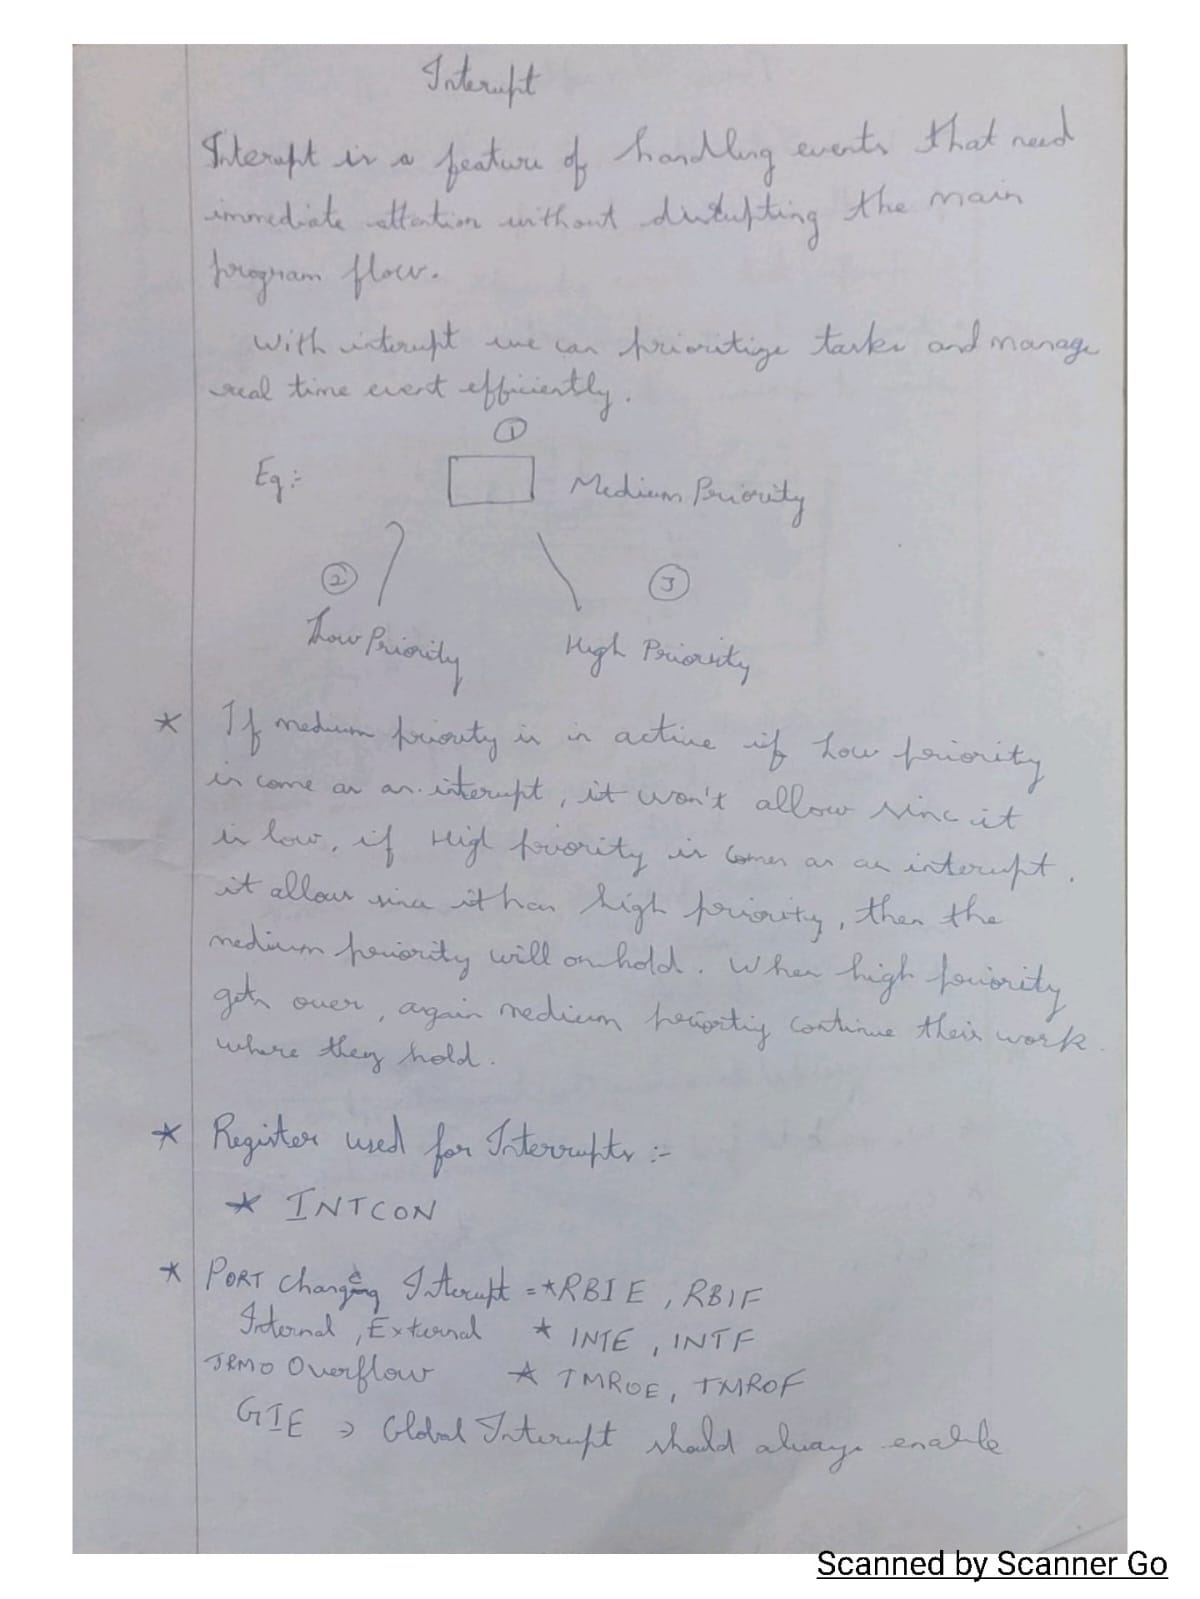 Interupt
Interupt is a feature of handling events that need
immediate attention without distupting the main
program flow.
With interupt we can prioritize tasks and manage
real time event efficiently.
1
Eg:- Medium Priority
2 3
Low Priority High Priority
* If medium priority is in active if Low priority
is come as an interupt, it won't allow sinc it
is low, if High priority is comes as an interupt.
it allow since it has high priority, then the
medium priority will on hold. When high priority
gets over, again medium priortiy continue their work
where they hold.
* Register used for Interrupts :-
* INTCON
* PORT Change Interupt = * RBIE, RBIF
Internal, External * INTE, INTF
TRMO Overflow * TMROE, TMROF
GIE → Global Interupt should always enable
Scanned by Scanner Go